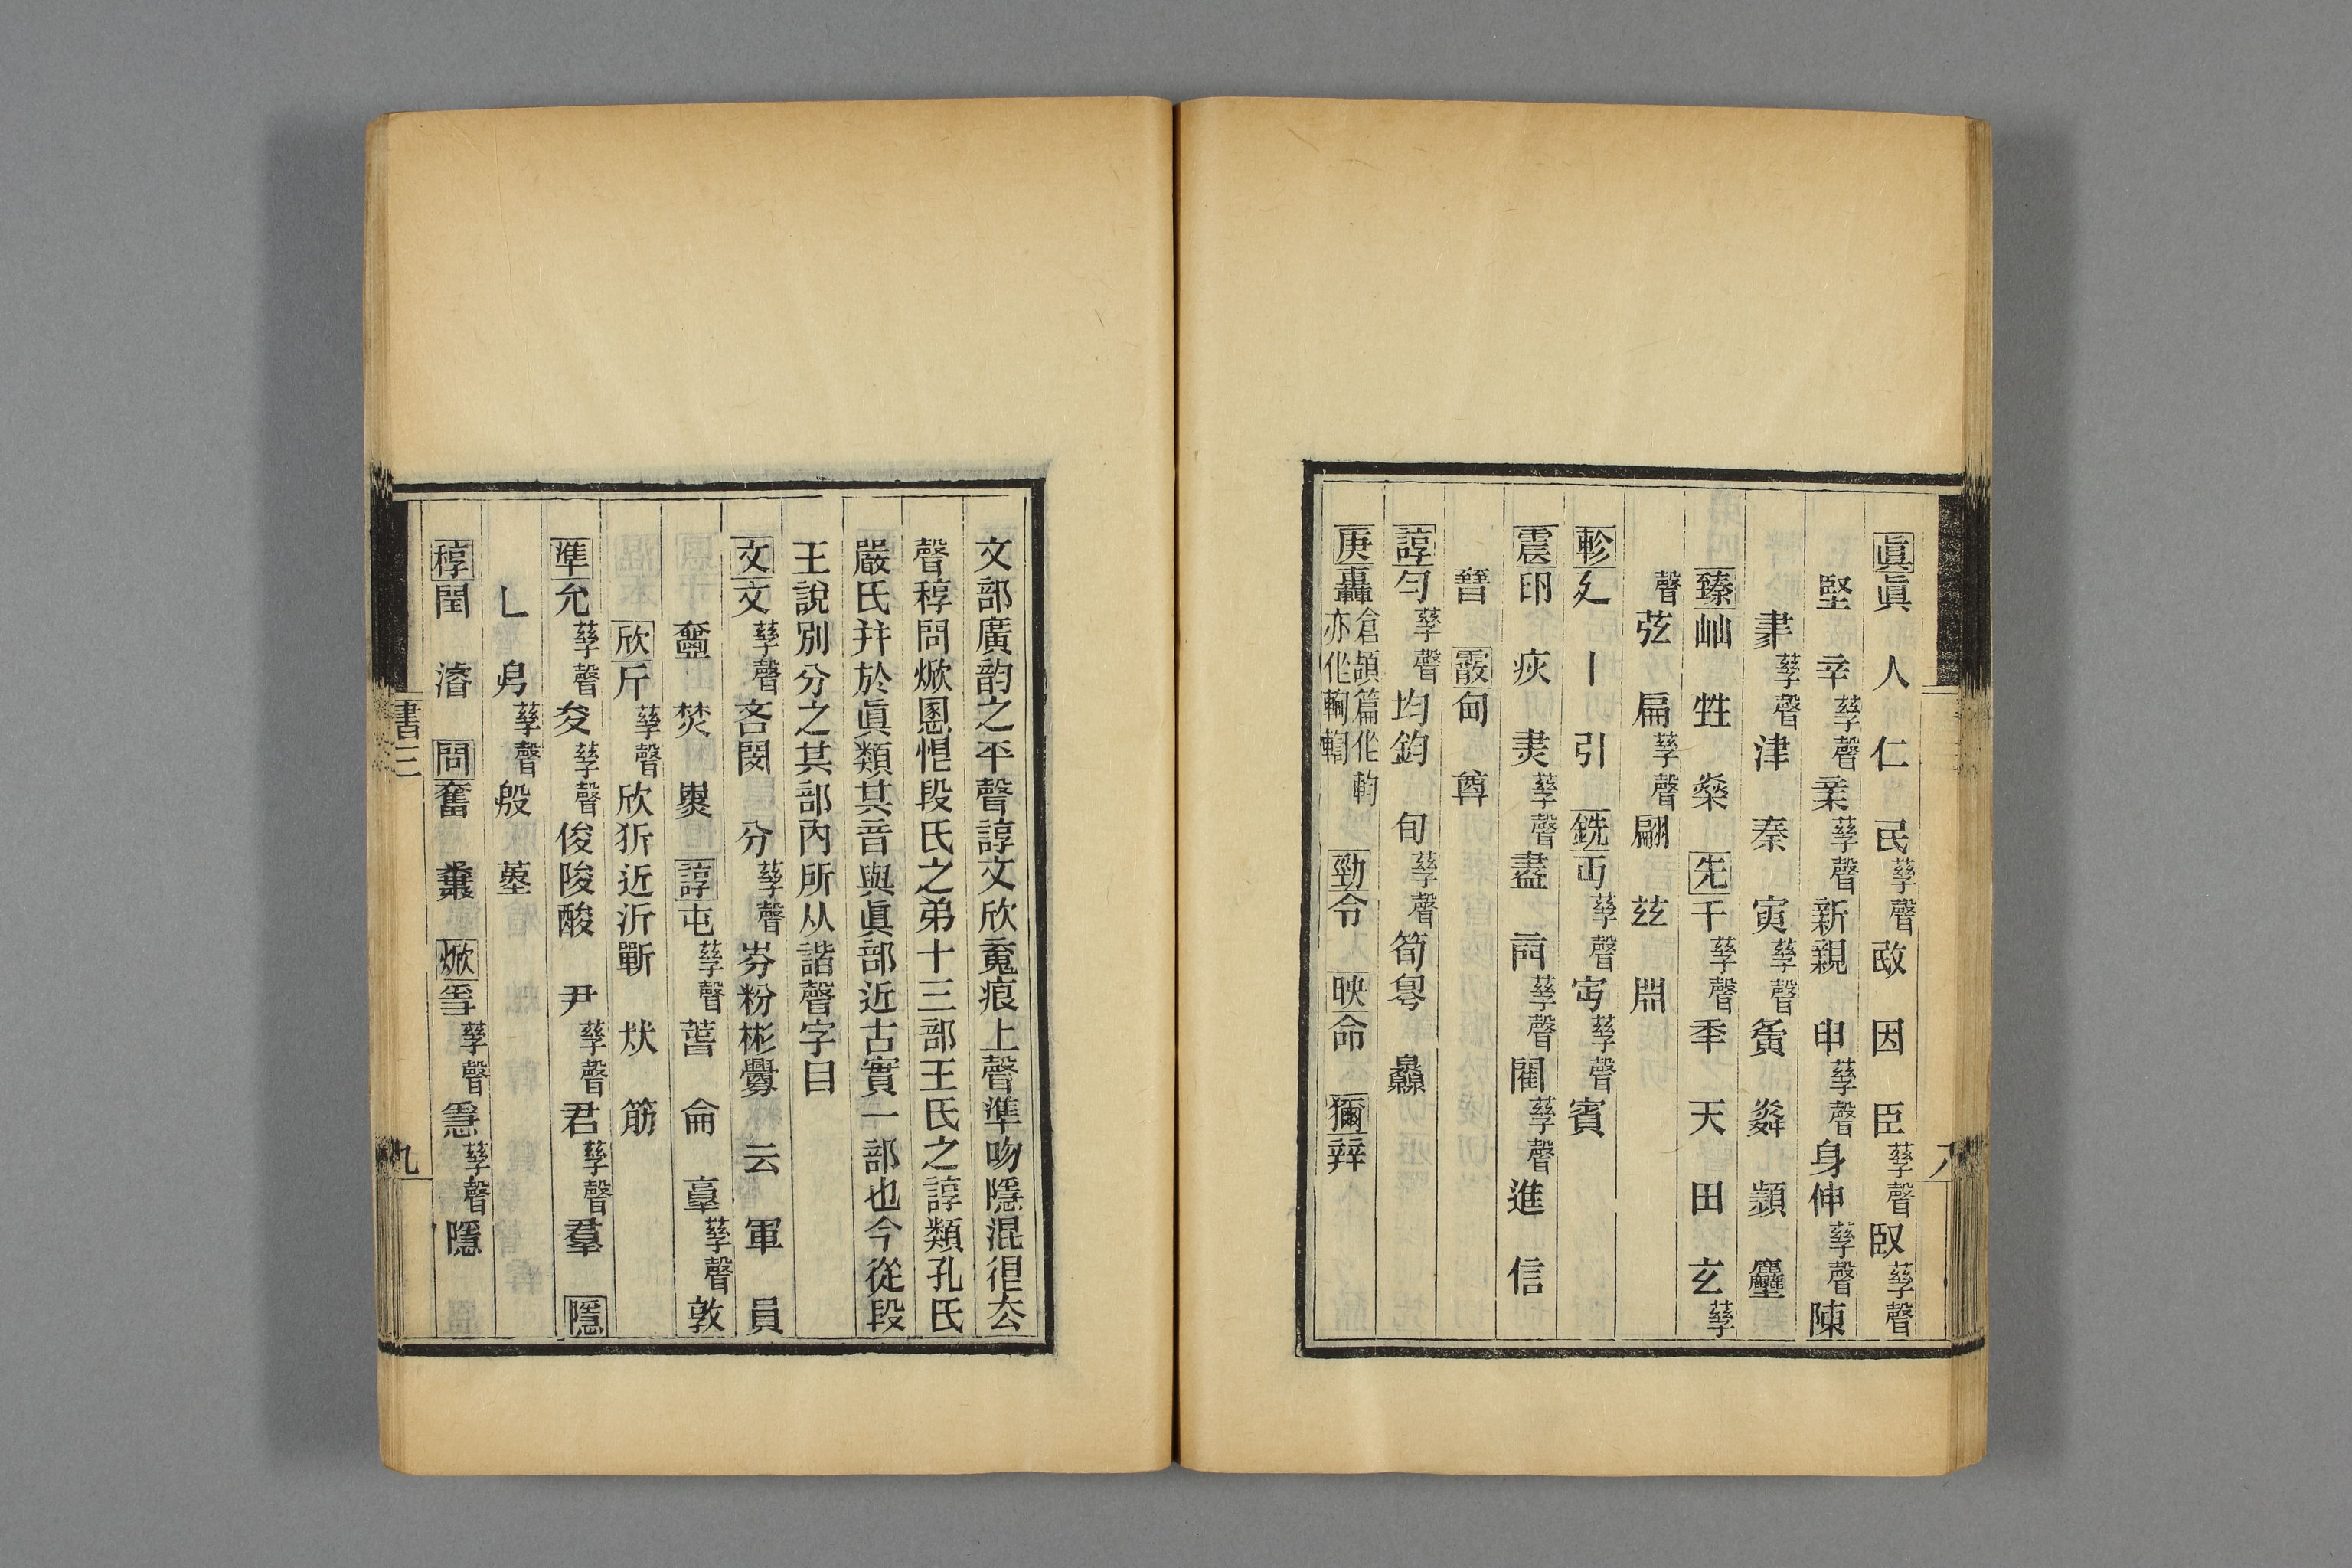 眞眞 人 仁 民孳聲 𢻻 因 臣孳聲 臤孳聲
堅 辛孳聲 亲孳聲 新親 申孳聲 身伸孳聲 陳
𦘔孳聲 津 秦 寅孳聲 夤 粦 瀕 㽪
臻屾 甡 燊 先千孳聲 秊 天 田 玄孳
聲 弦 扁孳聲 翩 玆 淵
軫廴 丨 引 銑丏孳聲 宀孳聲 賓
震印 疢 㶳孳聲 盡 㒼孳聲 閵孳聲 進 信
朁 霰甸 奠
諄勻孳聲 均鈞 旬孳聲 筍 䲜
庚轟倉頡篇作䡈
亦作輷䡘
勁令 映命 獮辡
八
文部廣韵之平聲諄文欣䰟痕上聲準吻隱混很去
聲稕問焮慁恨段氏之弟十三部王氏之諄類孔氏
嚴氏幷於眞類其音與眞部近古實一部也今從段
王說別分之其部內所从諧聲字目
文文孳聲 吝閔 分孳聲 岑粉彬釁 云 軍 員
㿽 焚 㷠 諄屯孳聲 萅 侖 𦎫孳聲 敦
欣斤孳聲 欣狋近沂斲 炏 筋
準允孳聲 夋孳聲 俊陖酸 尹孳聲 君孳聲 羣 隱
乚 㐆孳聲 殷 蓳
稕閏 濬 問奮 糞 焮㥯孳聲 㥯孳聲 隱
書三
九